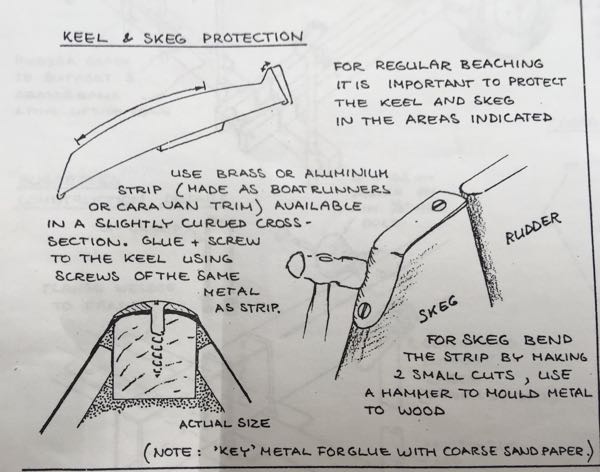 KEEL & SKEG PROTECTION
FOR REGULAR BEACHING
IT IS IMPORTANT TO PROTECT
THE KEEL AND SKEG
IN THE AREAS INDICATED
USE BRASS OR ALUMINIUM
STRIP (MADE AS BOATRUNNERS
OR CARAVAN TRIM) AVAILABLE
IN A SLIGHTLY CURVED CROSS-
SECTION. GLUE + SCREW
TO THE KEEL USING
SCREWS OF THE SAME
METAL
AS STRIP.
RUDDER
SKEG
FOR SKEG BEND
THE STRIP BY MAKING
2 SMALL CUTS, USE
A HAMMER TO MOULD METAL
TO WOOD
ACTUAL SIZE
(NOTE: 'KEY' METAL FOR GLUE WITH COARSE SAND PAPER.)